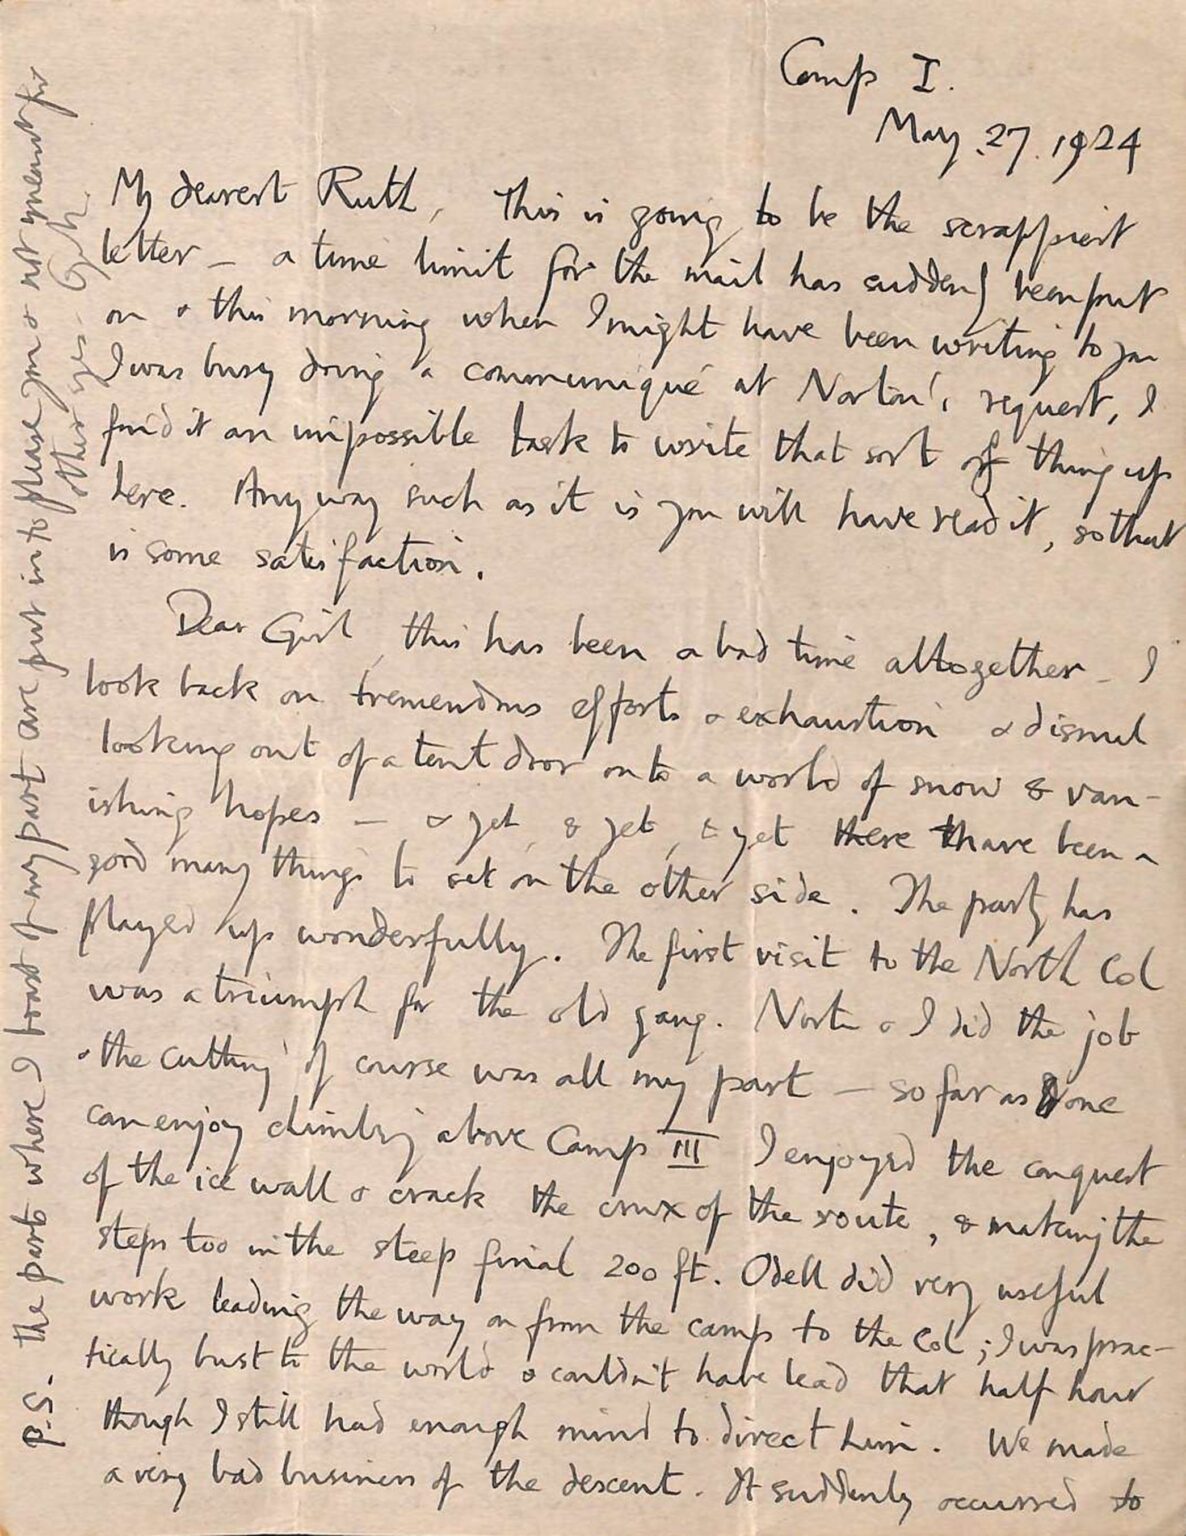 Camp I.
May. 27. 1924
My dearest Ruth, This is going to be the scrappiest
letter – a time limit for the mail has suddenly been put
on & this morning when I might have been writing to you
I was busy doing a communiqué at Norton's request, I
find it an impossible task to write that sort of thing up
here. Any way such as it is you will have read it, so that
is some satisfaction.
Dear Girl, this has been a bad time altogether – I
look back on tremendous efforts & exhaustion & dismal
looking out of a tent door onto a world of snow & van-
ishing hopes – & yet, & yet, & yet there have been a
good many things to set on the other side. The party has
played up wonderfully. The first visit to the North Col
was a triumph for the old gang. Norton & I did the job
& the cutting of course was all my part – so far as one
can enjoy climbing above Camp III I enjoyed the conquest
of the ice wall & crack the crux of the route, & making the
steps too in the steep final 200 ft. Odell did very useful
work leading the way on from the camp to the Col; I was prac-
tically bust to the world & couldn't have lead that half hour
though I still had enough mind to direct him. We made
a very bad business of the descent. It suddenly occurred to
P.S. The parts where I boast of my part are put in to please you & not meant for
other eyes – G.L.M.